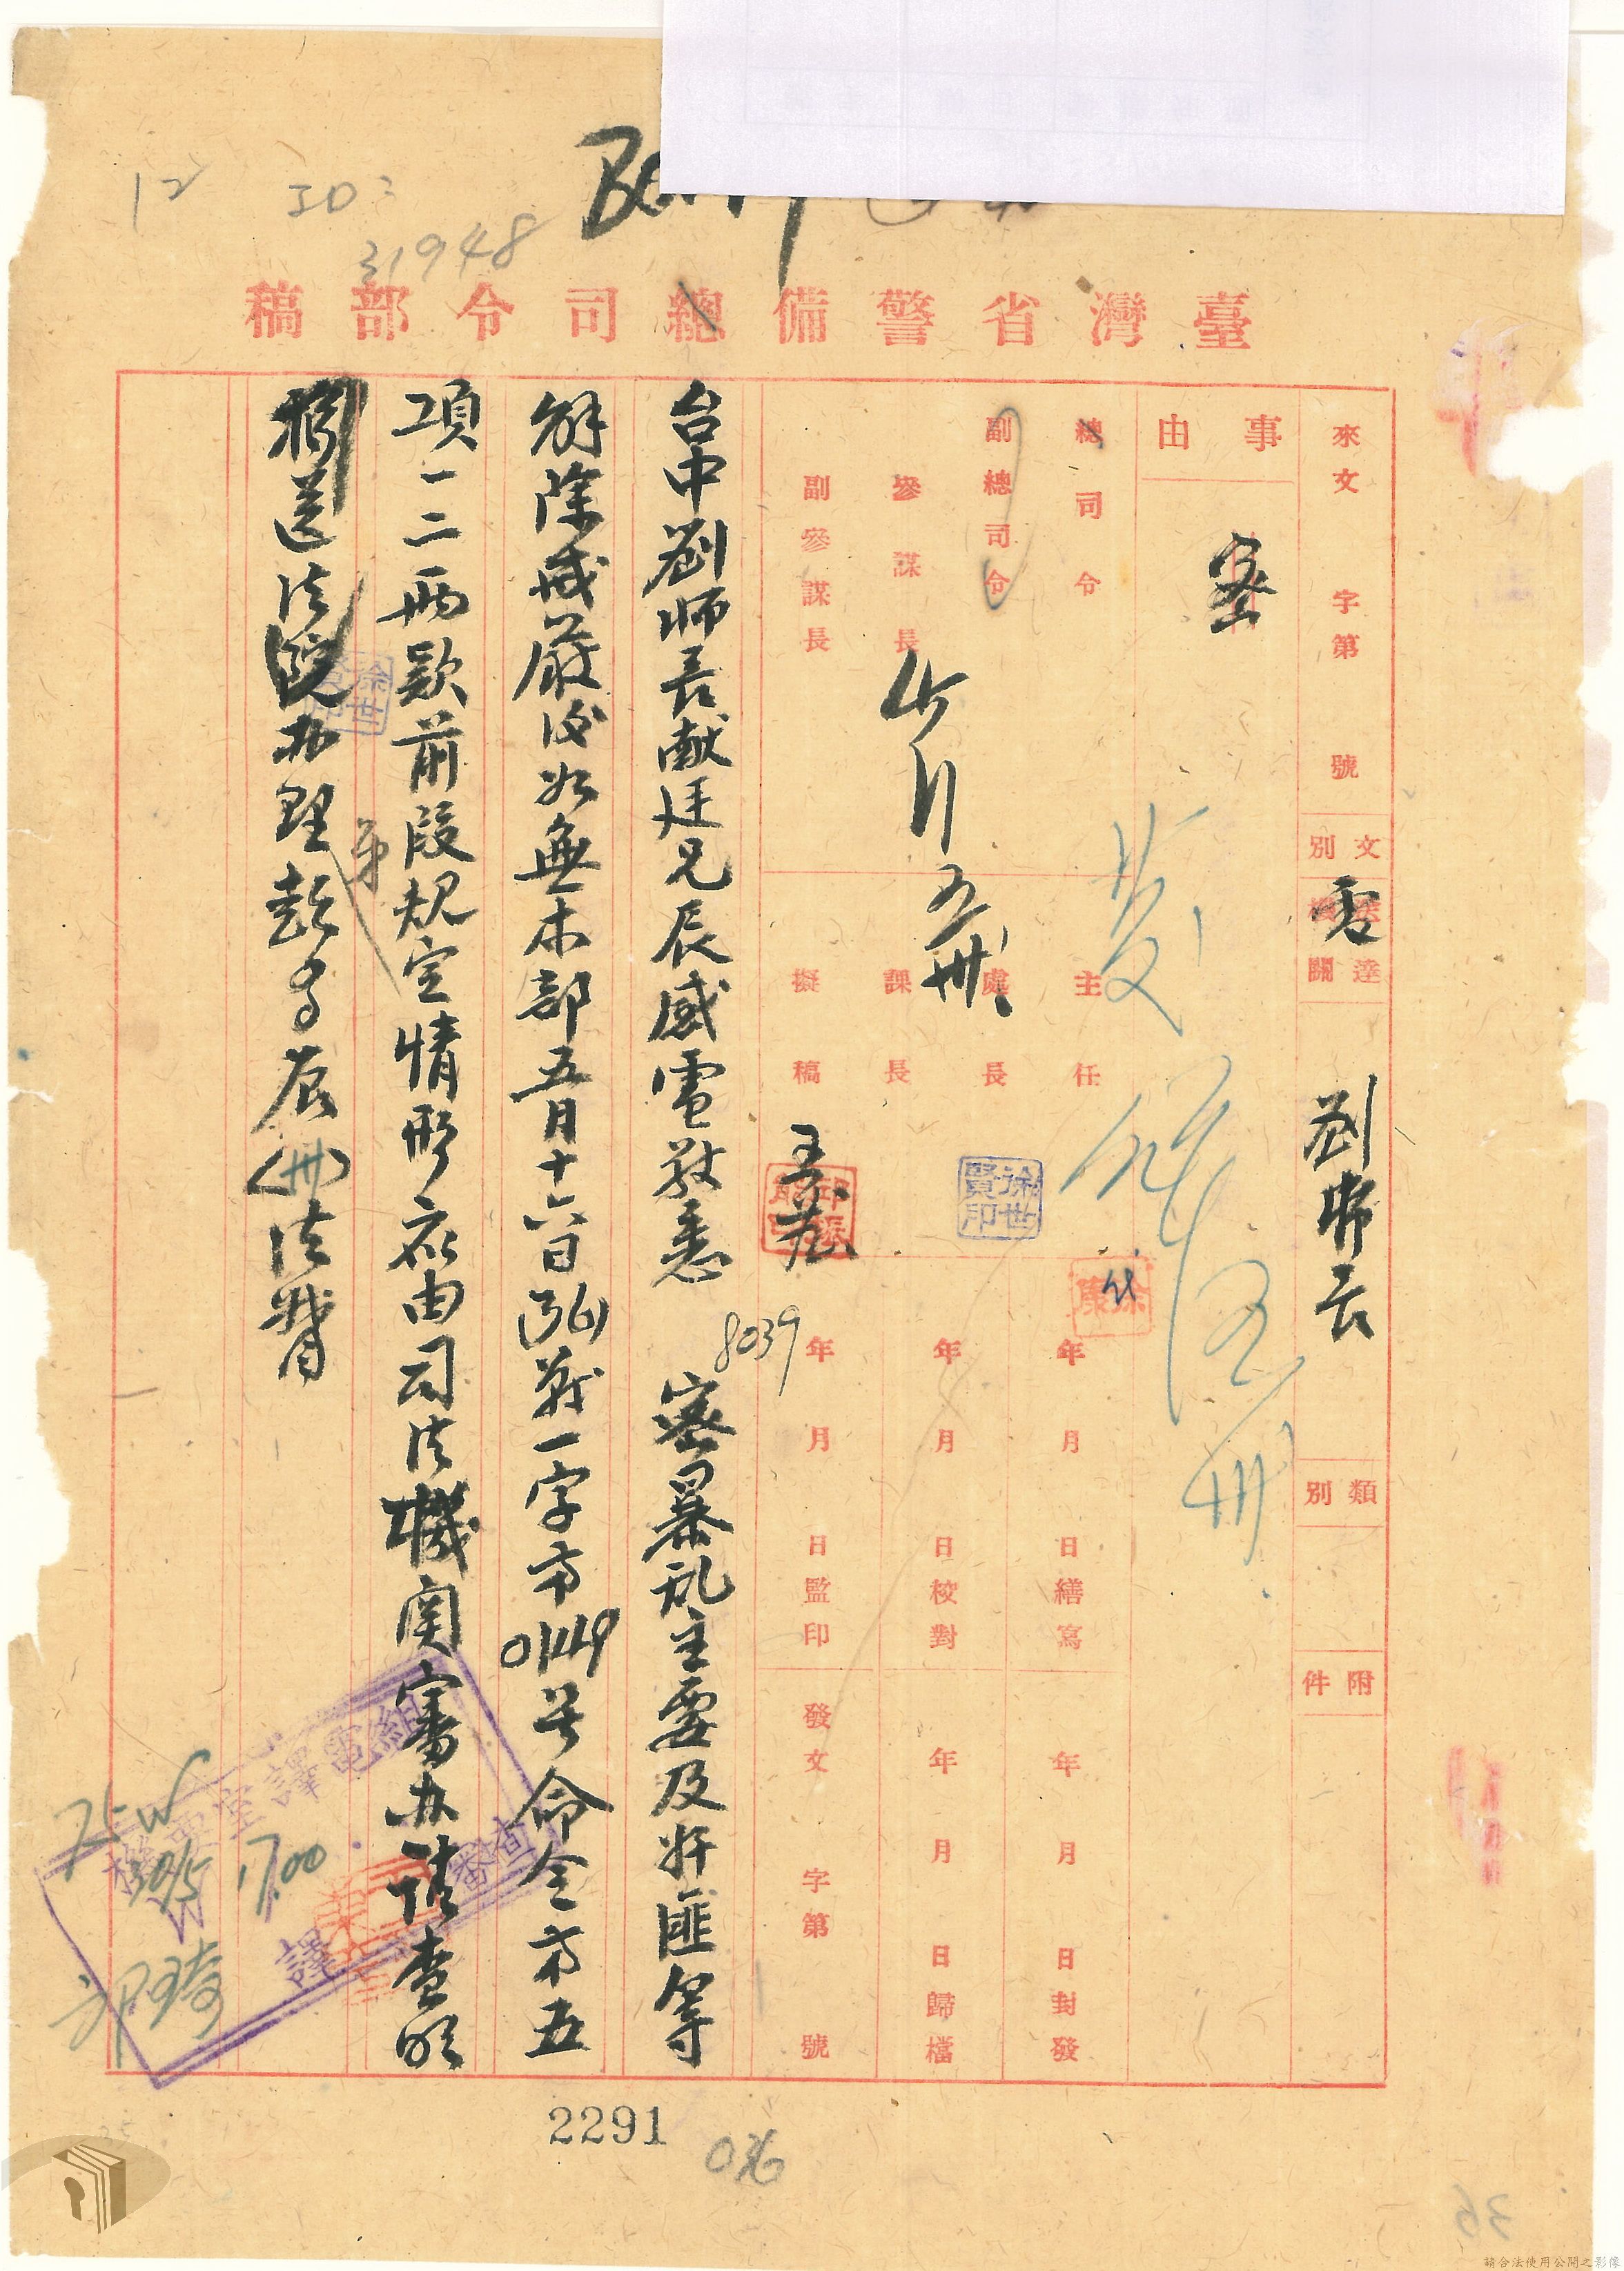 12
ID=
31948
臺灣省警備總司令部稿
來文 字第 號
文別 電
送達機關 劉師長
類別
附件
事由 密
總司令
副總司令
參謀長
副參謀長
主任
處長
課長
擬稿
徐世賢印
年 月 日繕寫
年 月 日校對
年 月 日監印
年 月 日封發
年 月 日歸檔
發文 字第 號
8039
台中劉師長献廷兄辰感電敬悉 密暴乱主要及奸匪等
解除戒嚴後如無本部五月十六日(36)戰一字第0149号命令第五
項一二兩款前段規定情形應由司法機関審办請查明
移送法院办理 辰(卅)法督
機要室譯電組
30/5 17.00
2291
036
36
請合法使用公開之影像